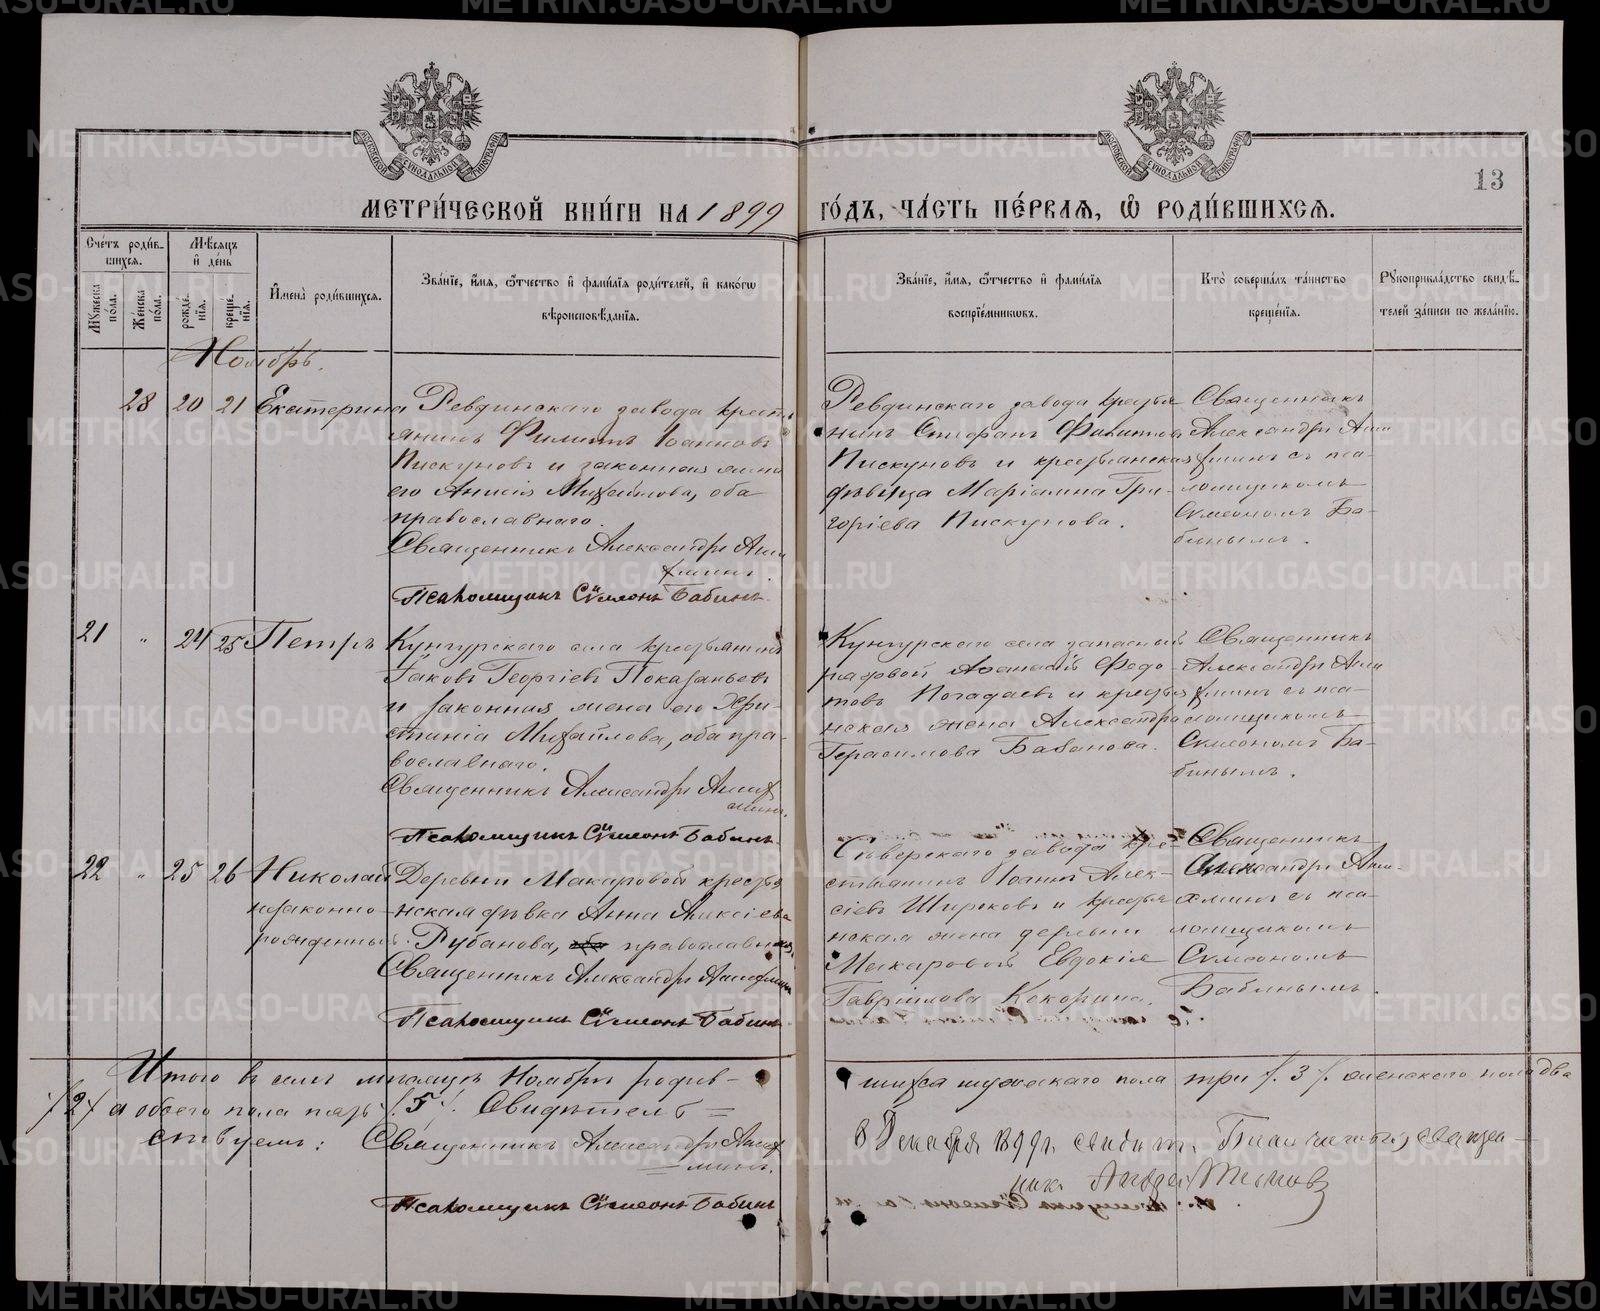 МЕТРИ́ЧЕСКОЙ КНИ́ГИ НА 1899 ГО́ДЪ, ЧА́СТЬ ПЕ́РВАЯ, Ѡ РОДИ́ВШИХСЯ.
13
Сче́тъ роди́в-
шихся.
Му́жеска по́ла.
Же́нска по́ла.
Мѣ́сяцъ и҆ де́нь
рожде́нїя.
креще́нїя.
И҆мена̀ роди́вшихся.
Зва́нїе, и҆́мя, ѻ҆́тчество и҆ фами́лїя роди́телей, и҆ како́гѡ
вѣроисповѣ́данїя.
Зва́нїе, и҆́мя, ѻ҆́тчество и҆ фами́лїя
воспрїе́мникѡвъ.
Кто̀ соверша́лъ та́инство
креще́нїя.
Рꙋкоприкла́дство свидѣ́-
телей за́писи по жела́нїю.
Ноябрь.
28 20 21 Екатерина
Ревдинскаго завода кресть
янинъ Филиппъ Іоанновъ
Пискуновъ и законная жена
его Анисія Михайлова, оба
православнаго.
Священникъ Александръ
Псаломщикъ Сѵмеонъ Бабинъ
Ревдинскаго завода крестья
нинъ Стефанъ Филиппов
Пискуновъ и крестьянская
дѣвица Маріамна Гри-
горіева Пискунова.
Священникъ
Александръ
съ пса-
ломщикомъ
Сѵмеономъ Ба-
бинымъ.
21 „ 24 25 Петръ
Кунгурскаго села крестьянинъ
Іаковъ Георгіевъ
и законная жена его Хри-
стинія Михайлова, оба пра-
вославнаго.
Священникъ Александръ
Псаломщикъ Сѵмеонъ Бабинъ
Кунгурскаго села запасный
рядовой Афанасій Федо-
товъ Погадаевъ и крестья
нская жена Александра
Герасимова Бабанова.
Священникъ
Александръ
съ пса-
ломщикомъ
Сѵмеономъ Ба-
бинымъ.
22 „ 25 26 Николай
незаконно-
рожденный.
Деревни Макаровой крестья
нская дѣвка Анна Алексіева
Рубанова, православная.
Священникъ Александръ
Псаломщикъ Сѵмеонъ Бабинъ
Сѣверскаго завода кре-
стьянинъ Іоаннъ Алек-
сіевъ Ширяковъ и крестья
нская жена деревни
Макаровой Евдокія
Гавріилова Кокорина.
Священникъ
Александръ
съ пса-
ломщикомъ
Сѵмеономъ
Бабинымъ.
Итого въ семъ мѣсяцѣ Ноябрѣ родив-
шихся мужескаго пола три /.3/. женскаго пола два
/2/ а обоего пола пять /.5/. Свидѣтель-
ствуемъ: Священникъ Александръ
Псаломщикъ Сѵмеонъ Бабинъ
8 Декабря 1899 г. свидѣт. Благочинный, священ-
никъ Андрей
METRIKI.GASO-URAL.RU